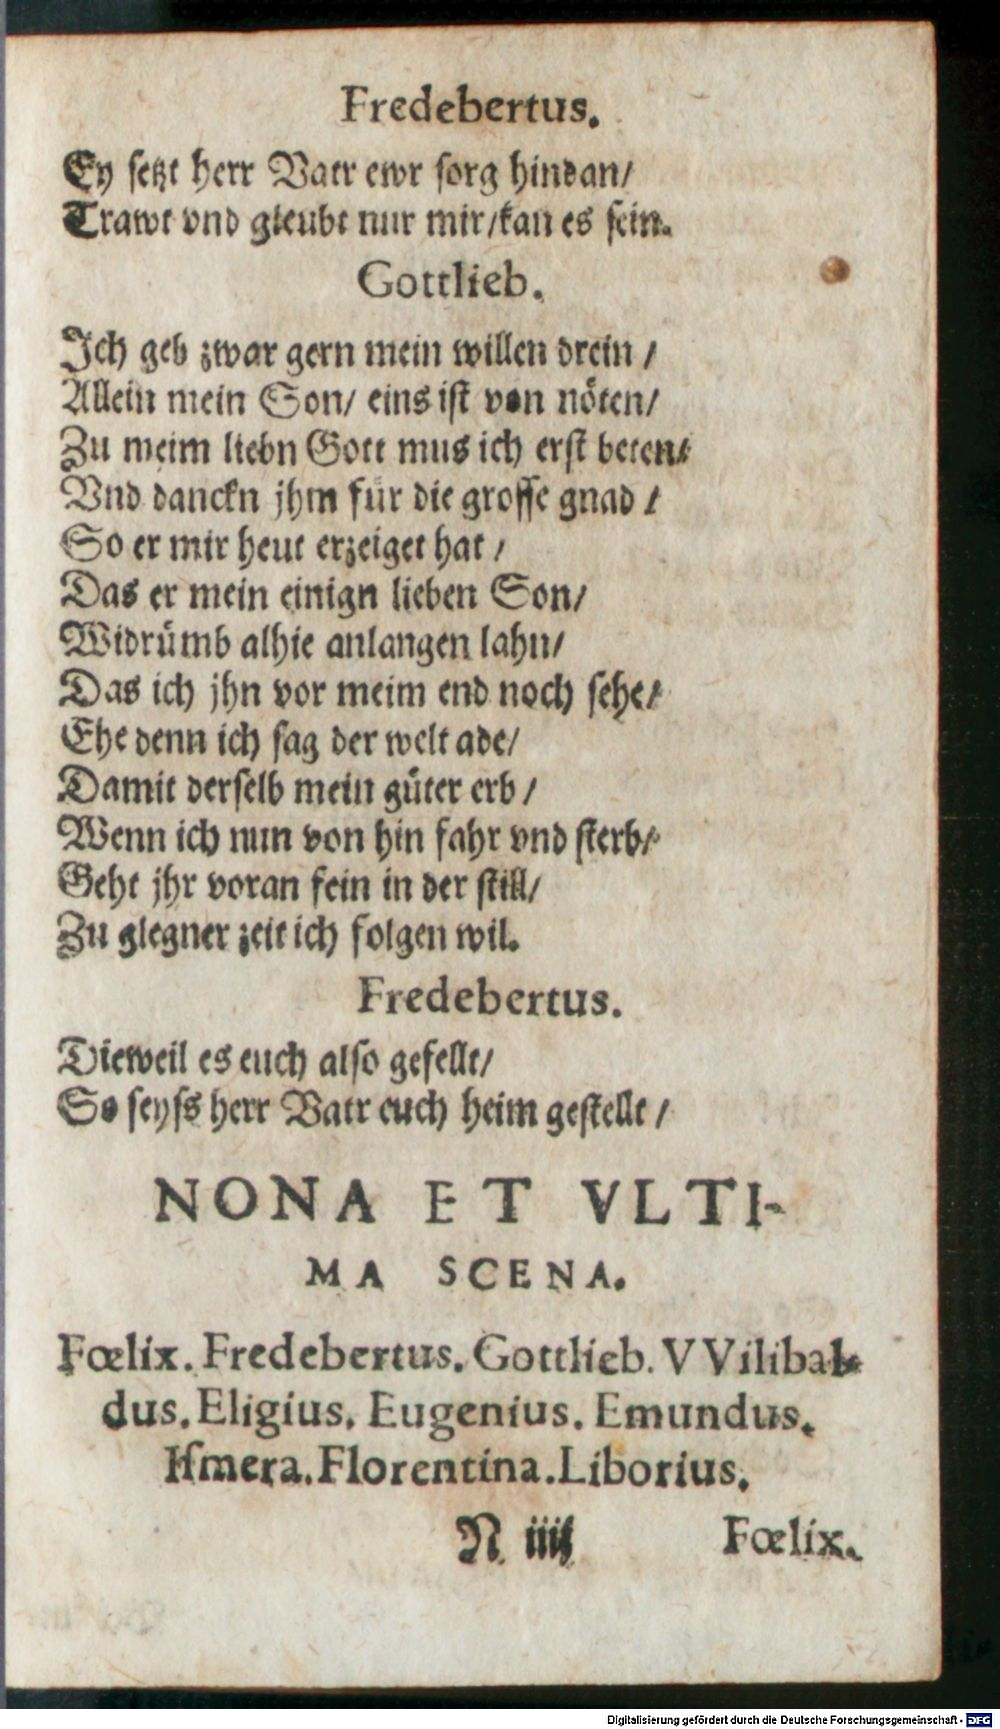 Fredebertus.
Ey setzt herr Vatr ewr sorg hindan/
Trawt vnd gleubt nur mir/kan es sein.
Gottlieb.
Ich geb zwar gern mein willen drein /
Allein mein Son/ eins ist von nöten/
Zu meim liebn Gott mus ich erst beten/
Vnd danckn jhm für die grosse gnad /
So er mir heut erzeiget hat /
Das er mein einign lieben Son/
Widrümb alhie anlangen lahn/
Das ich jhn vor meim end noch sehe/
Ehe denn ich sag der welt ade/
Damit derselb mein güter erb /
Wenn ich nun von hin fahr vnd sterb/
Geht jhr voran fein in der still/
Zu glegner zeit ich folgen wil.
Fredebertus.
Dieweil es euch also gefellt/
So seyss herr Vatr euch heim gestellt /
NONA ET VLTI-
MA SCENA.
Fœlix. Fredebertus. Gottlieb. VVilibal-
dus. Eligius. Eugenius. Emundus.
Ismera. Florentina. Liborius.
N iiij Fœlix.
Digitalisierung gefördert durch die Deutsche Forschungsgemeinschaft - DFG